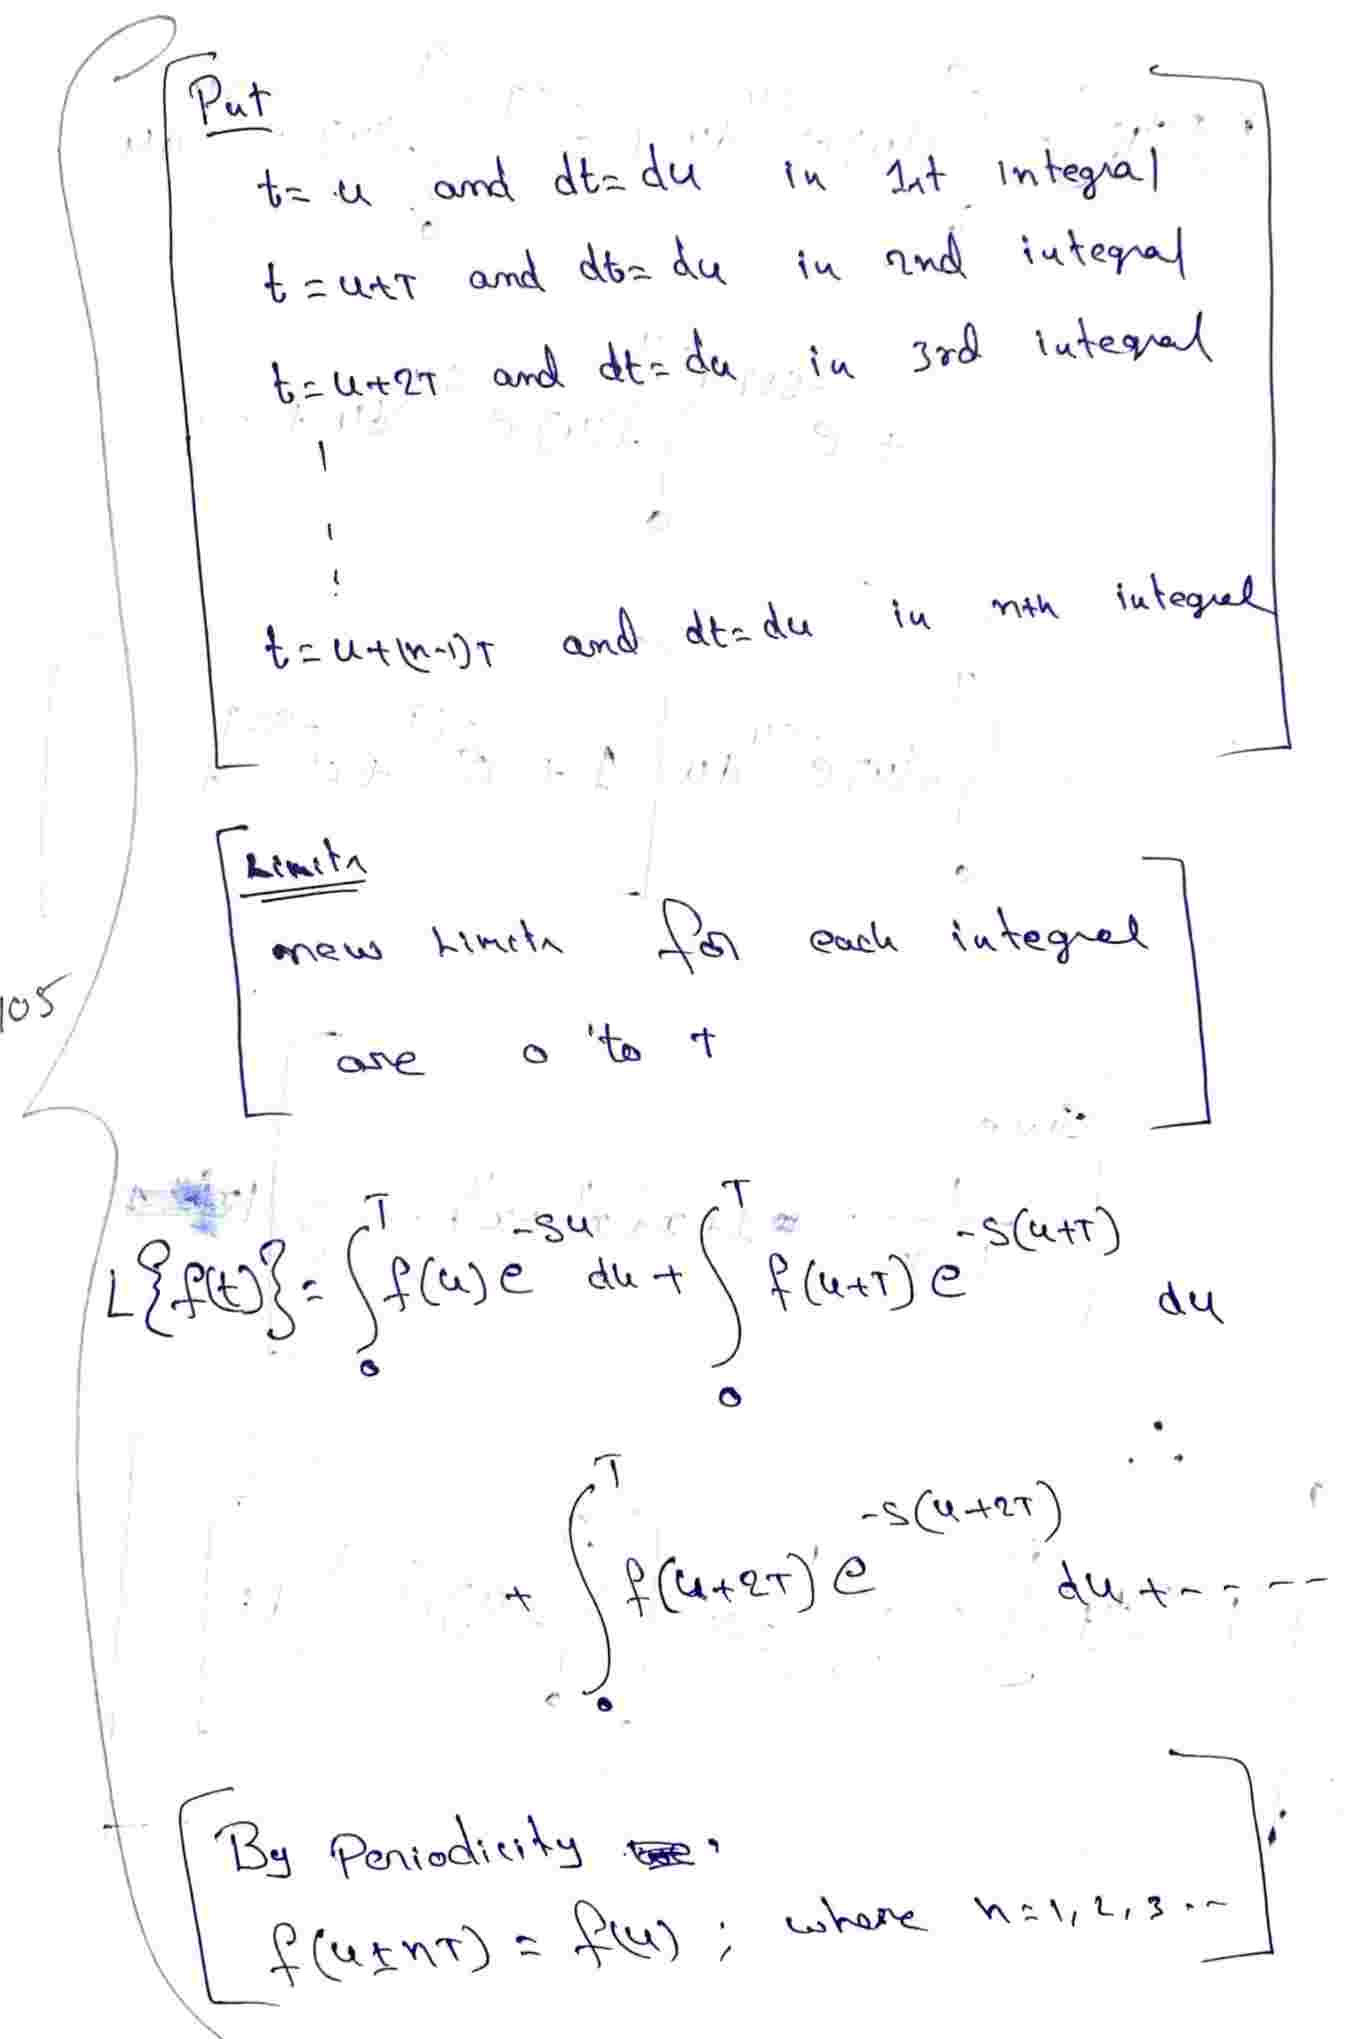 Put
t = u and dt = du in 1st integral
t = u+T and dt = du in 2nd integral
t = u+2T and dt = du in 3rd integral
t = u+(n-1)T and dt = du in nth integral
Limits
new Limits for each integral
are 0 to T
105
L{f(t)} = ∫₀ᵀ f(u) e^{-su} du + ∫₀ᵀ f(u+T) e^{-s(u+T)} du
+ ∫₀ᵀ f(u+2T) e^{-s(u+2T)} du + - - - -
By Periodicity,
f(u±nT) = f(u) ; where n=1, 2, 3 ...